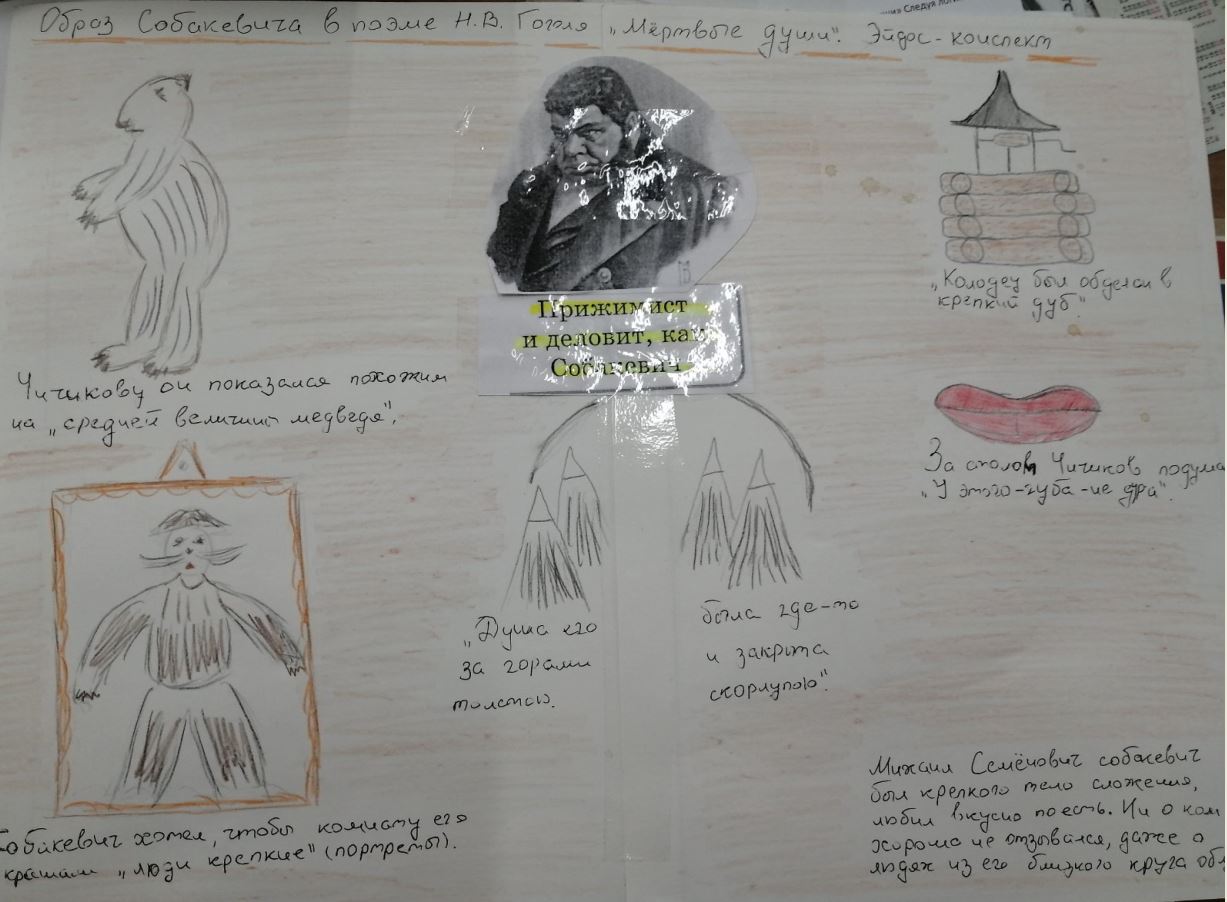 Образ Собакевича в поэме Н.В. Гоголя „Мёртвые души". Эйдос-конспект
Прижимист
и деловит, как
Собакевич
„Колодец был обделан в
крепкий дуб"
Чичикову он показался похожим
на „средней величины медведя".
За столом Чичиков подума
„У этого-губа-не дура".
„Душа его
за горами
толстою.
была где-то
и закрыта
скорлупою".
Собакевич хотел, чтобы комнату его
крашали „люди крепкие" (портреты).
Михаил Семёнович собакевич
был крепкого тело сложения,
любил вкусно поесть. Ни о ком
хорошо не отзывался, даже о
людях из его близкого круга об